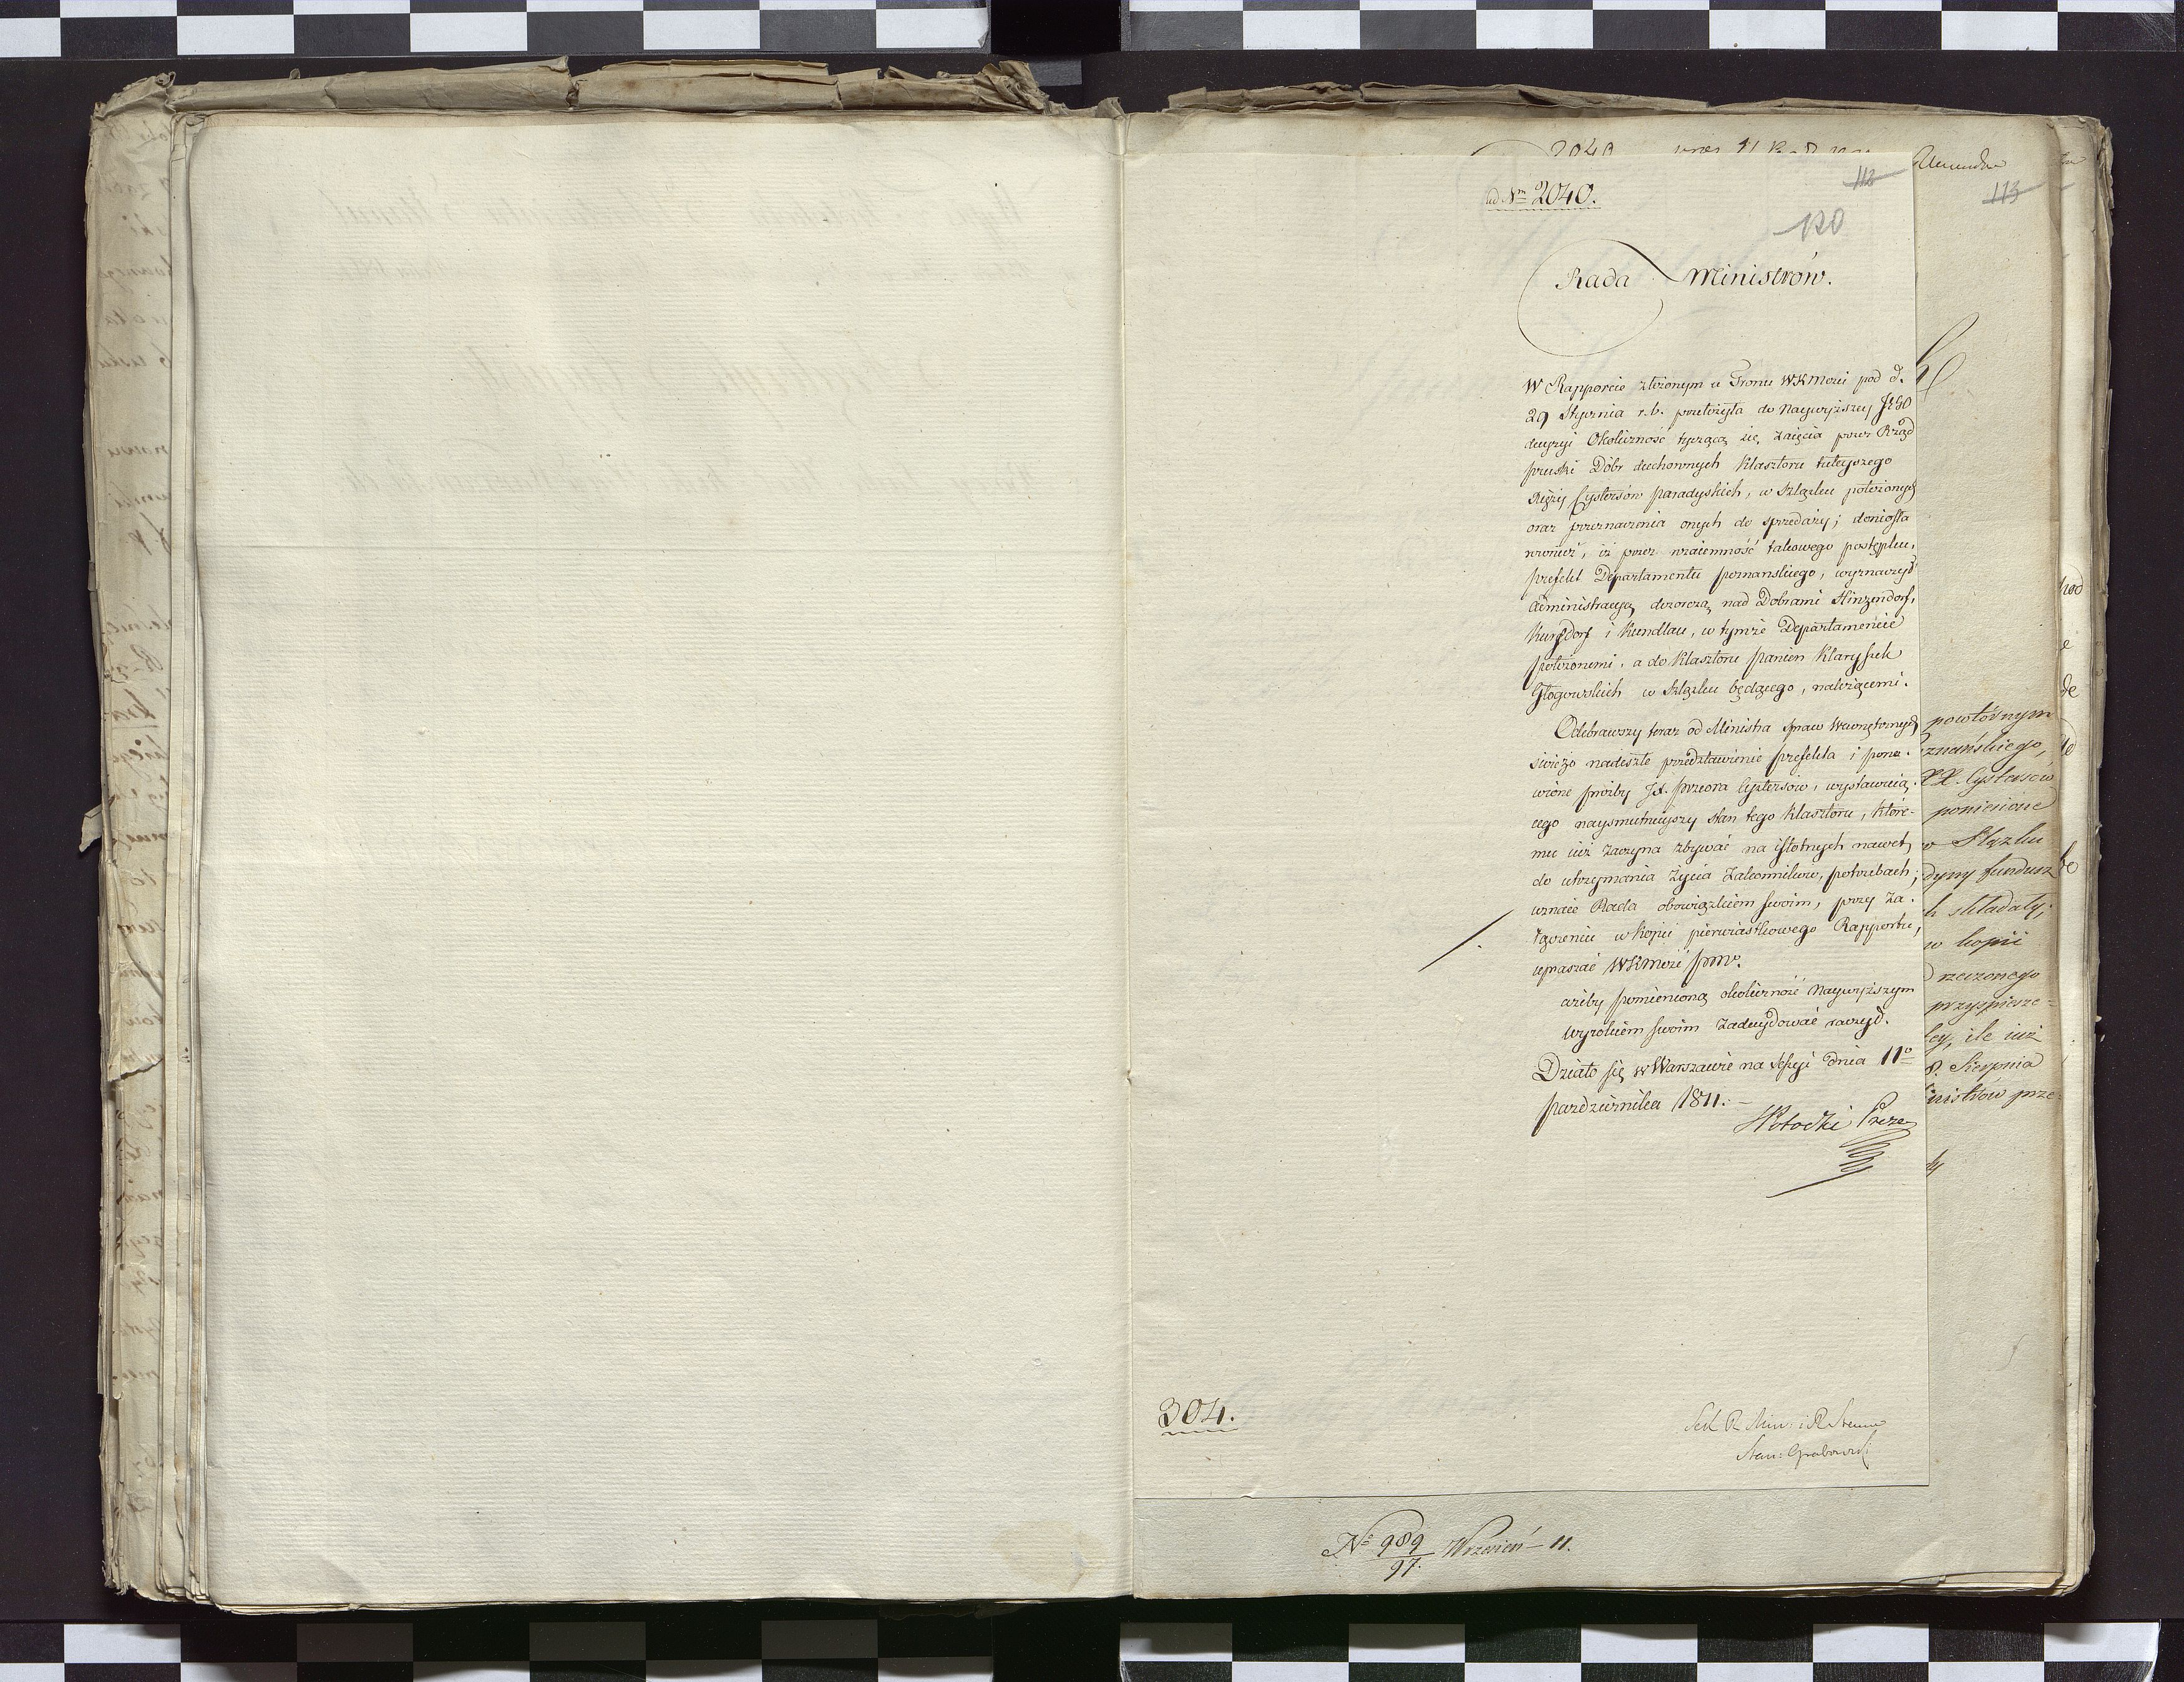 ad Nrm 2040.
112
120
113
Rada Ministrów.
W Rapporcie złożonym u Tronu WKMości pod d.
29 Stycznia r.b. przełożyła do Naywyższey JEGO
decyzyi Okoliczność tyczącą się zaięcia przez Rząd
pruski Dóbr duchownych Klasztoru tuteyszego
Xięży Cystersów paradyskich, w Szląsku położonych
oraz przeznaczenia onych do sprzedaży; doniosła
również, iż przez wzaiemność takowego postępku,
prefekt Departamentu poznanskiego, wyznaczył
administracyą dozorczą nad Dobrami Hinzendorf,
Kursdorf i Kundlau, w tymże Departamencie
położonemi, a do Klasztoru panien Klaryssek
Głogowskich w Szląsku będącego, należącemi.
Odebrawszy teraz od Ministra Spraw Wewnętrznych
świeżo nadeszłe przedstawienie prefekta i pono-
wione prośby JX. przeora Cystersów, wystawuią-
cego naysmutnieyszy stan tego Klasztoru, które-
mu iuż zaczyna zbywać na istotnych nawet,
do utrzymania życia Zakonników, potrzebach;
uznaie Rada obowiązkiem swoim, przy za-
łączeniu w kopii pierwiastkowego Rapportu,
upraszać WKMość pmo.
ażeby pomienioną okoliczność Naywyższym
wyrokiem swoim zadecydować raczył.
Działo się w Warszawie na Sessyi dnia 11o
pazdziernika 1811. -
SPotocki Preze
304.
Sek R Min: i R Stanu
Stan: Grabowski
No 989/97. Wrzesień - 11.
powtórnym
znańskiego,
XX. Cystersów
poniesione
w Sląsku
dyny fundusz
h składały;
w kopii
rzeczonego
przyspiesze=
ley, ile iuż
8. Sierpnia
nistrów prze